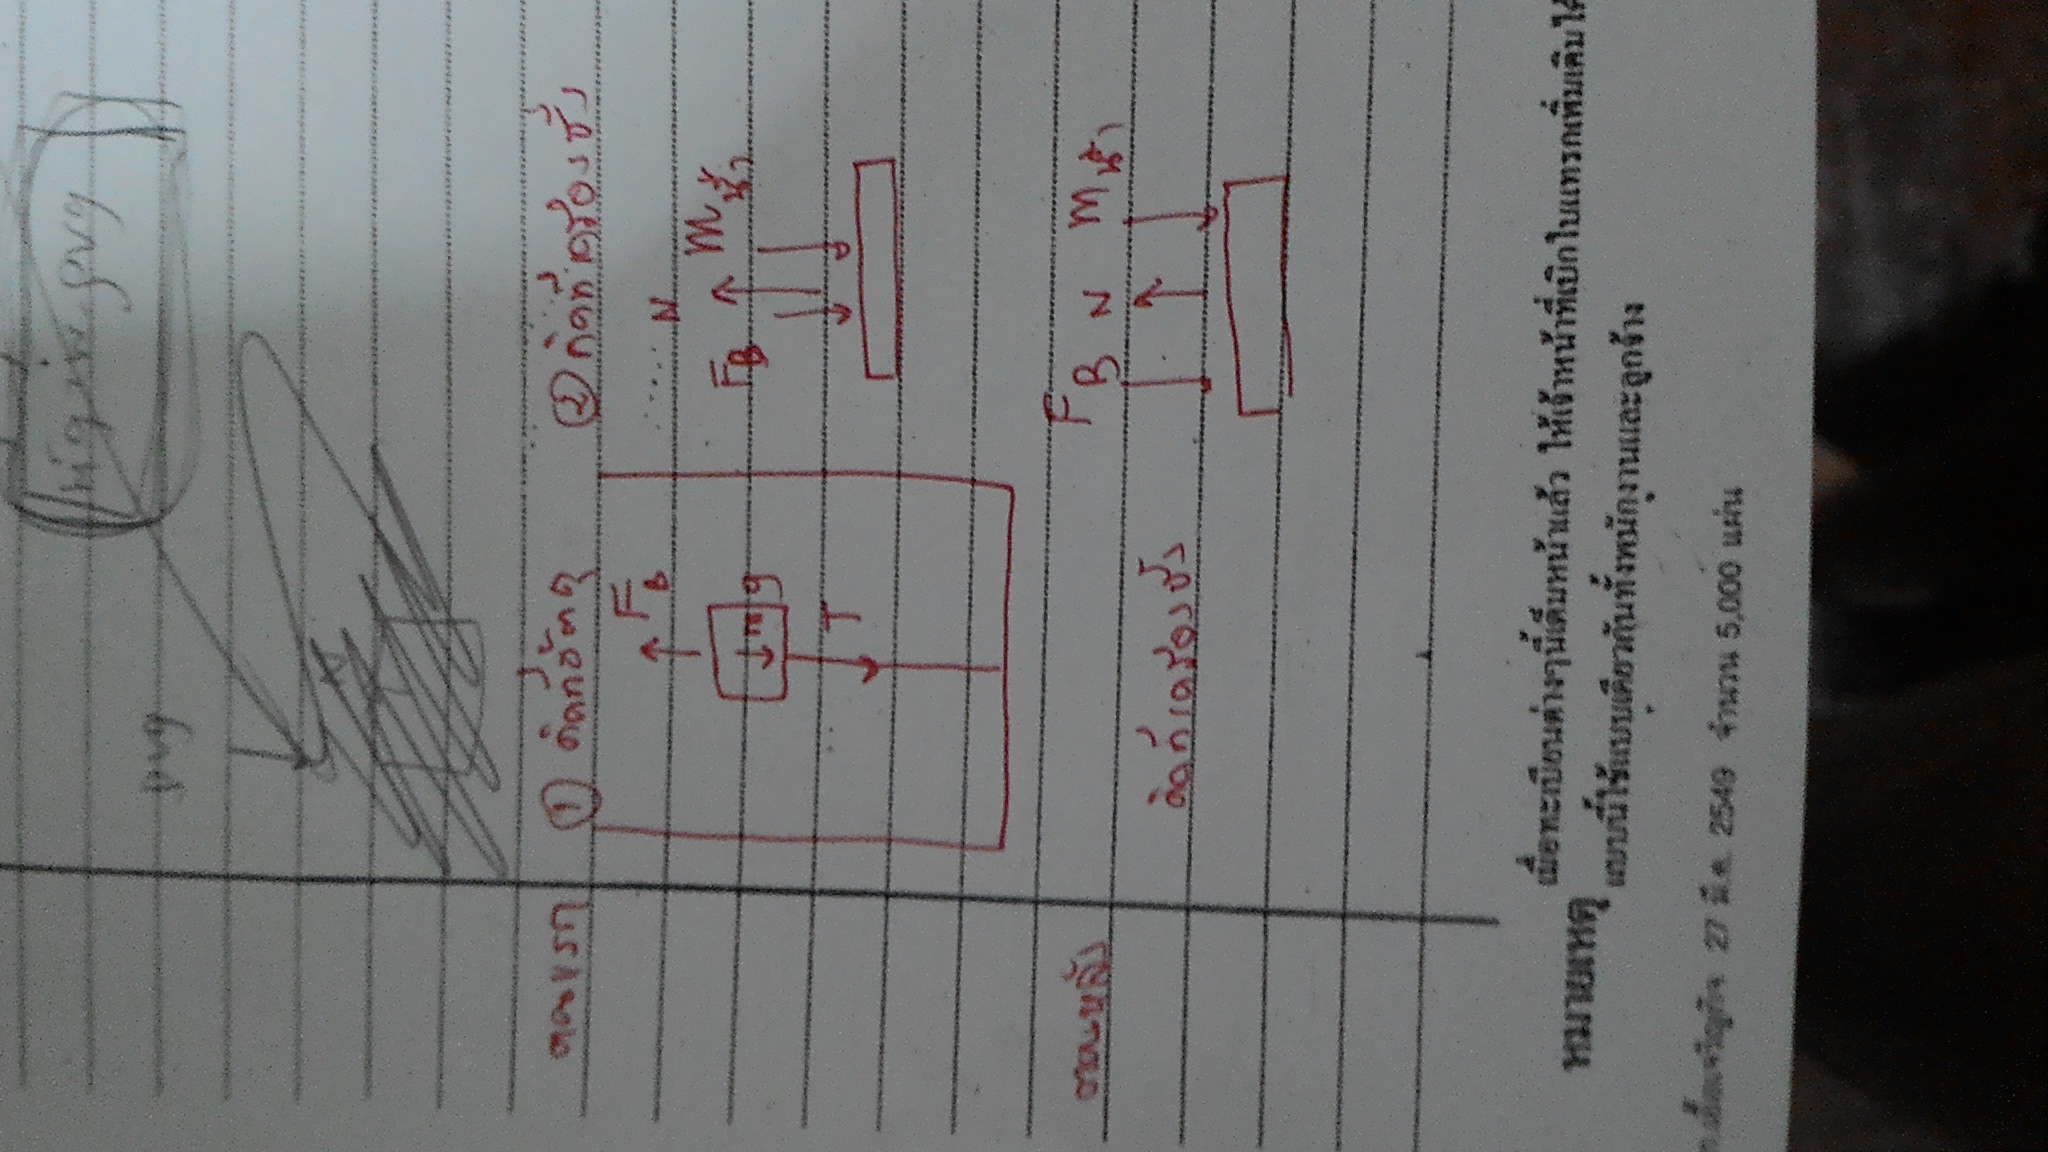 pvg
ตอนแรก ① คิดที่วัตถุ ② คิดที่เครื่องชั่ง
F_B
N
mg
F_B M น้ำ
T
ตอนหลัง F_B N M น้ำ
คิดที่เครื่องชั่ง
หมายเหตุ เมื่อทะเบียนต่างๆนี้เต็มหน้าแล้ว ให้เจ้าหน้าที่เบิกใบแทรกเพิ่มเติมได้
แบบนี้ใช้แบบเดียวกันทั้งพนักงานและลูกจ้าง
27 มี.ค. 2549 จำนวน 5,000 แผ่น